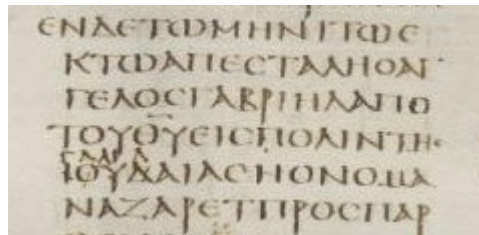 ΕΝΔΕΤΩΜΗΝΙΤΩΕ
ΚΤΩΑΠΕϹΤΑΛΗΟΑΓ
ΓΕΛΟϹΓΑΒΡΙΗΛΑΠΟ
ΤΟΥΘ̅Υ̅ΕΙϹΠΟΛΙΝΤΗϹ
ΙΟΥΔΑΙΑϹΗΟΝΟΜΑ
ΝΑΖΑΡΕΤΠΡΟϹΠΑΡ